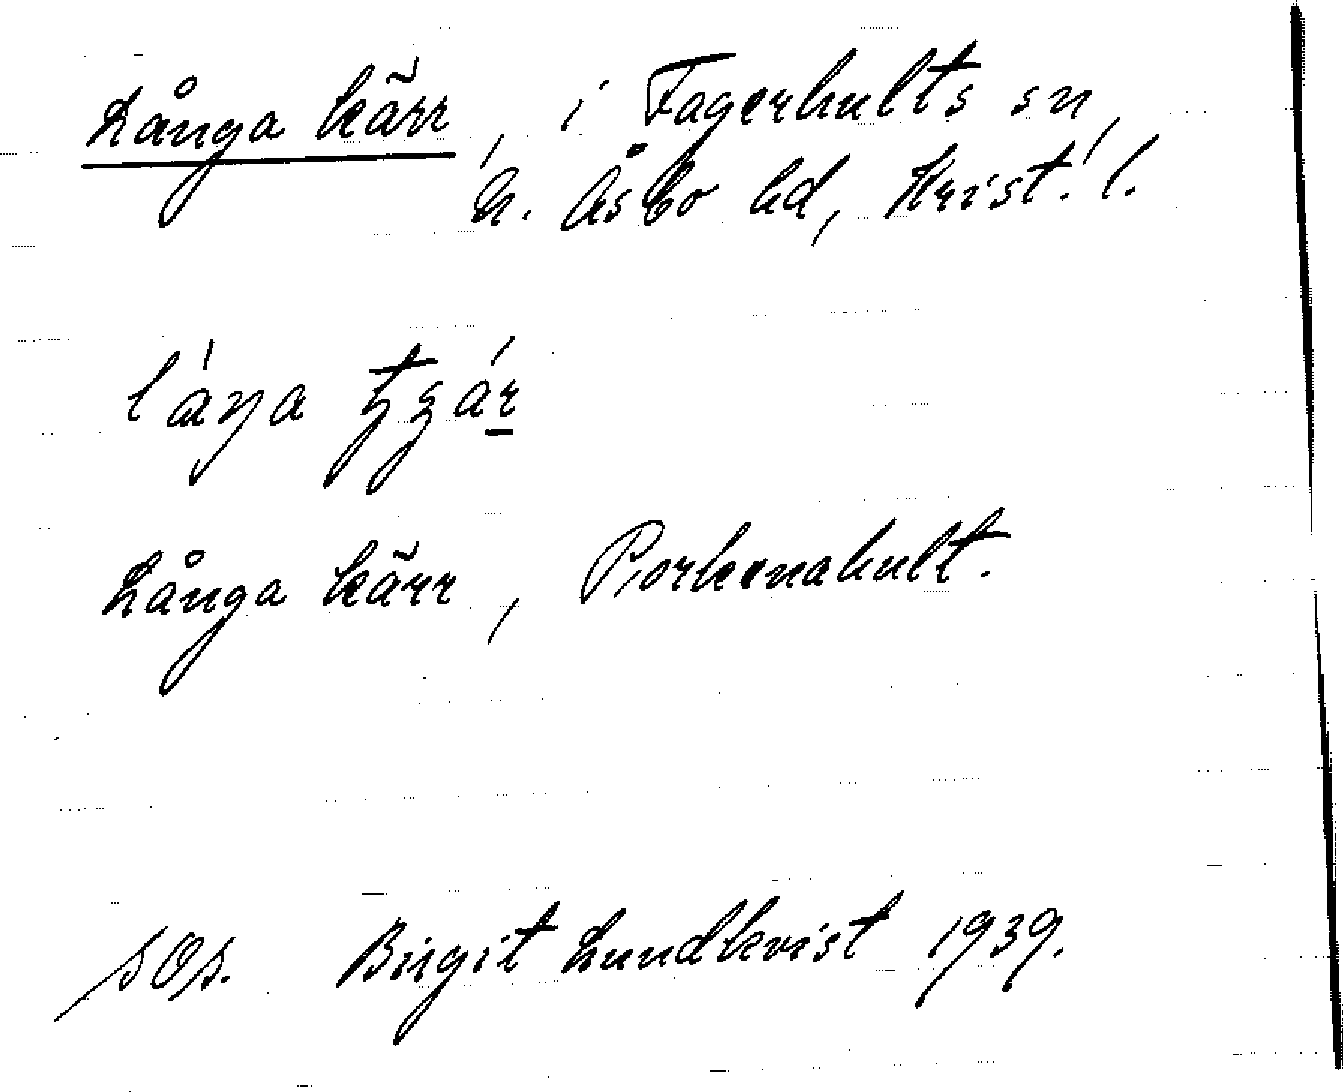 Långa kärr, i Fagerhults sn,
N. Åsbo hd, Krist. l.
Långa kärr, Porkenahult.
sOs. Birgit Lundkvist 1939.